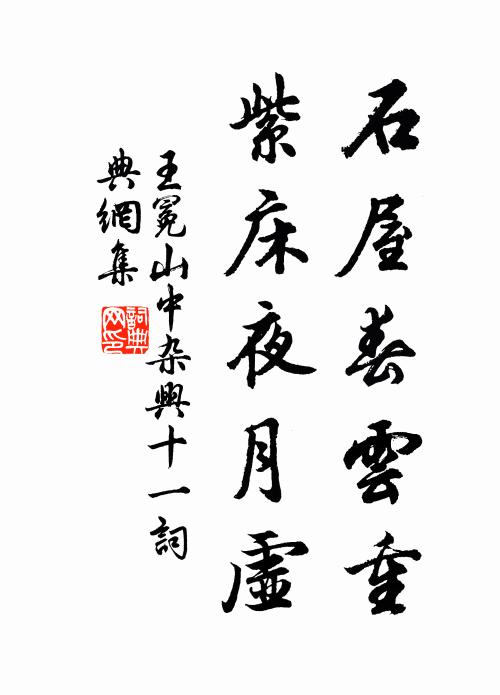 石屋春雲重
紫床夜月虛
王冕山中杂興十一詞
典網集
詞典
网印